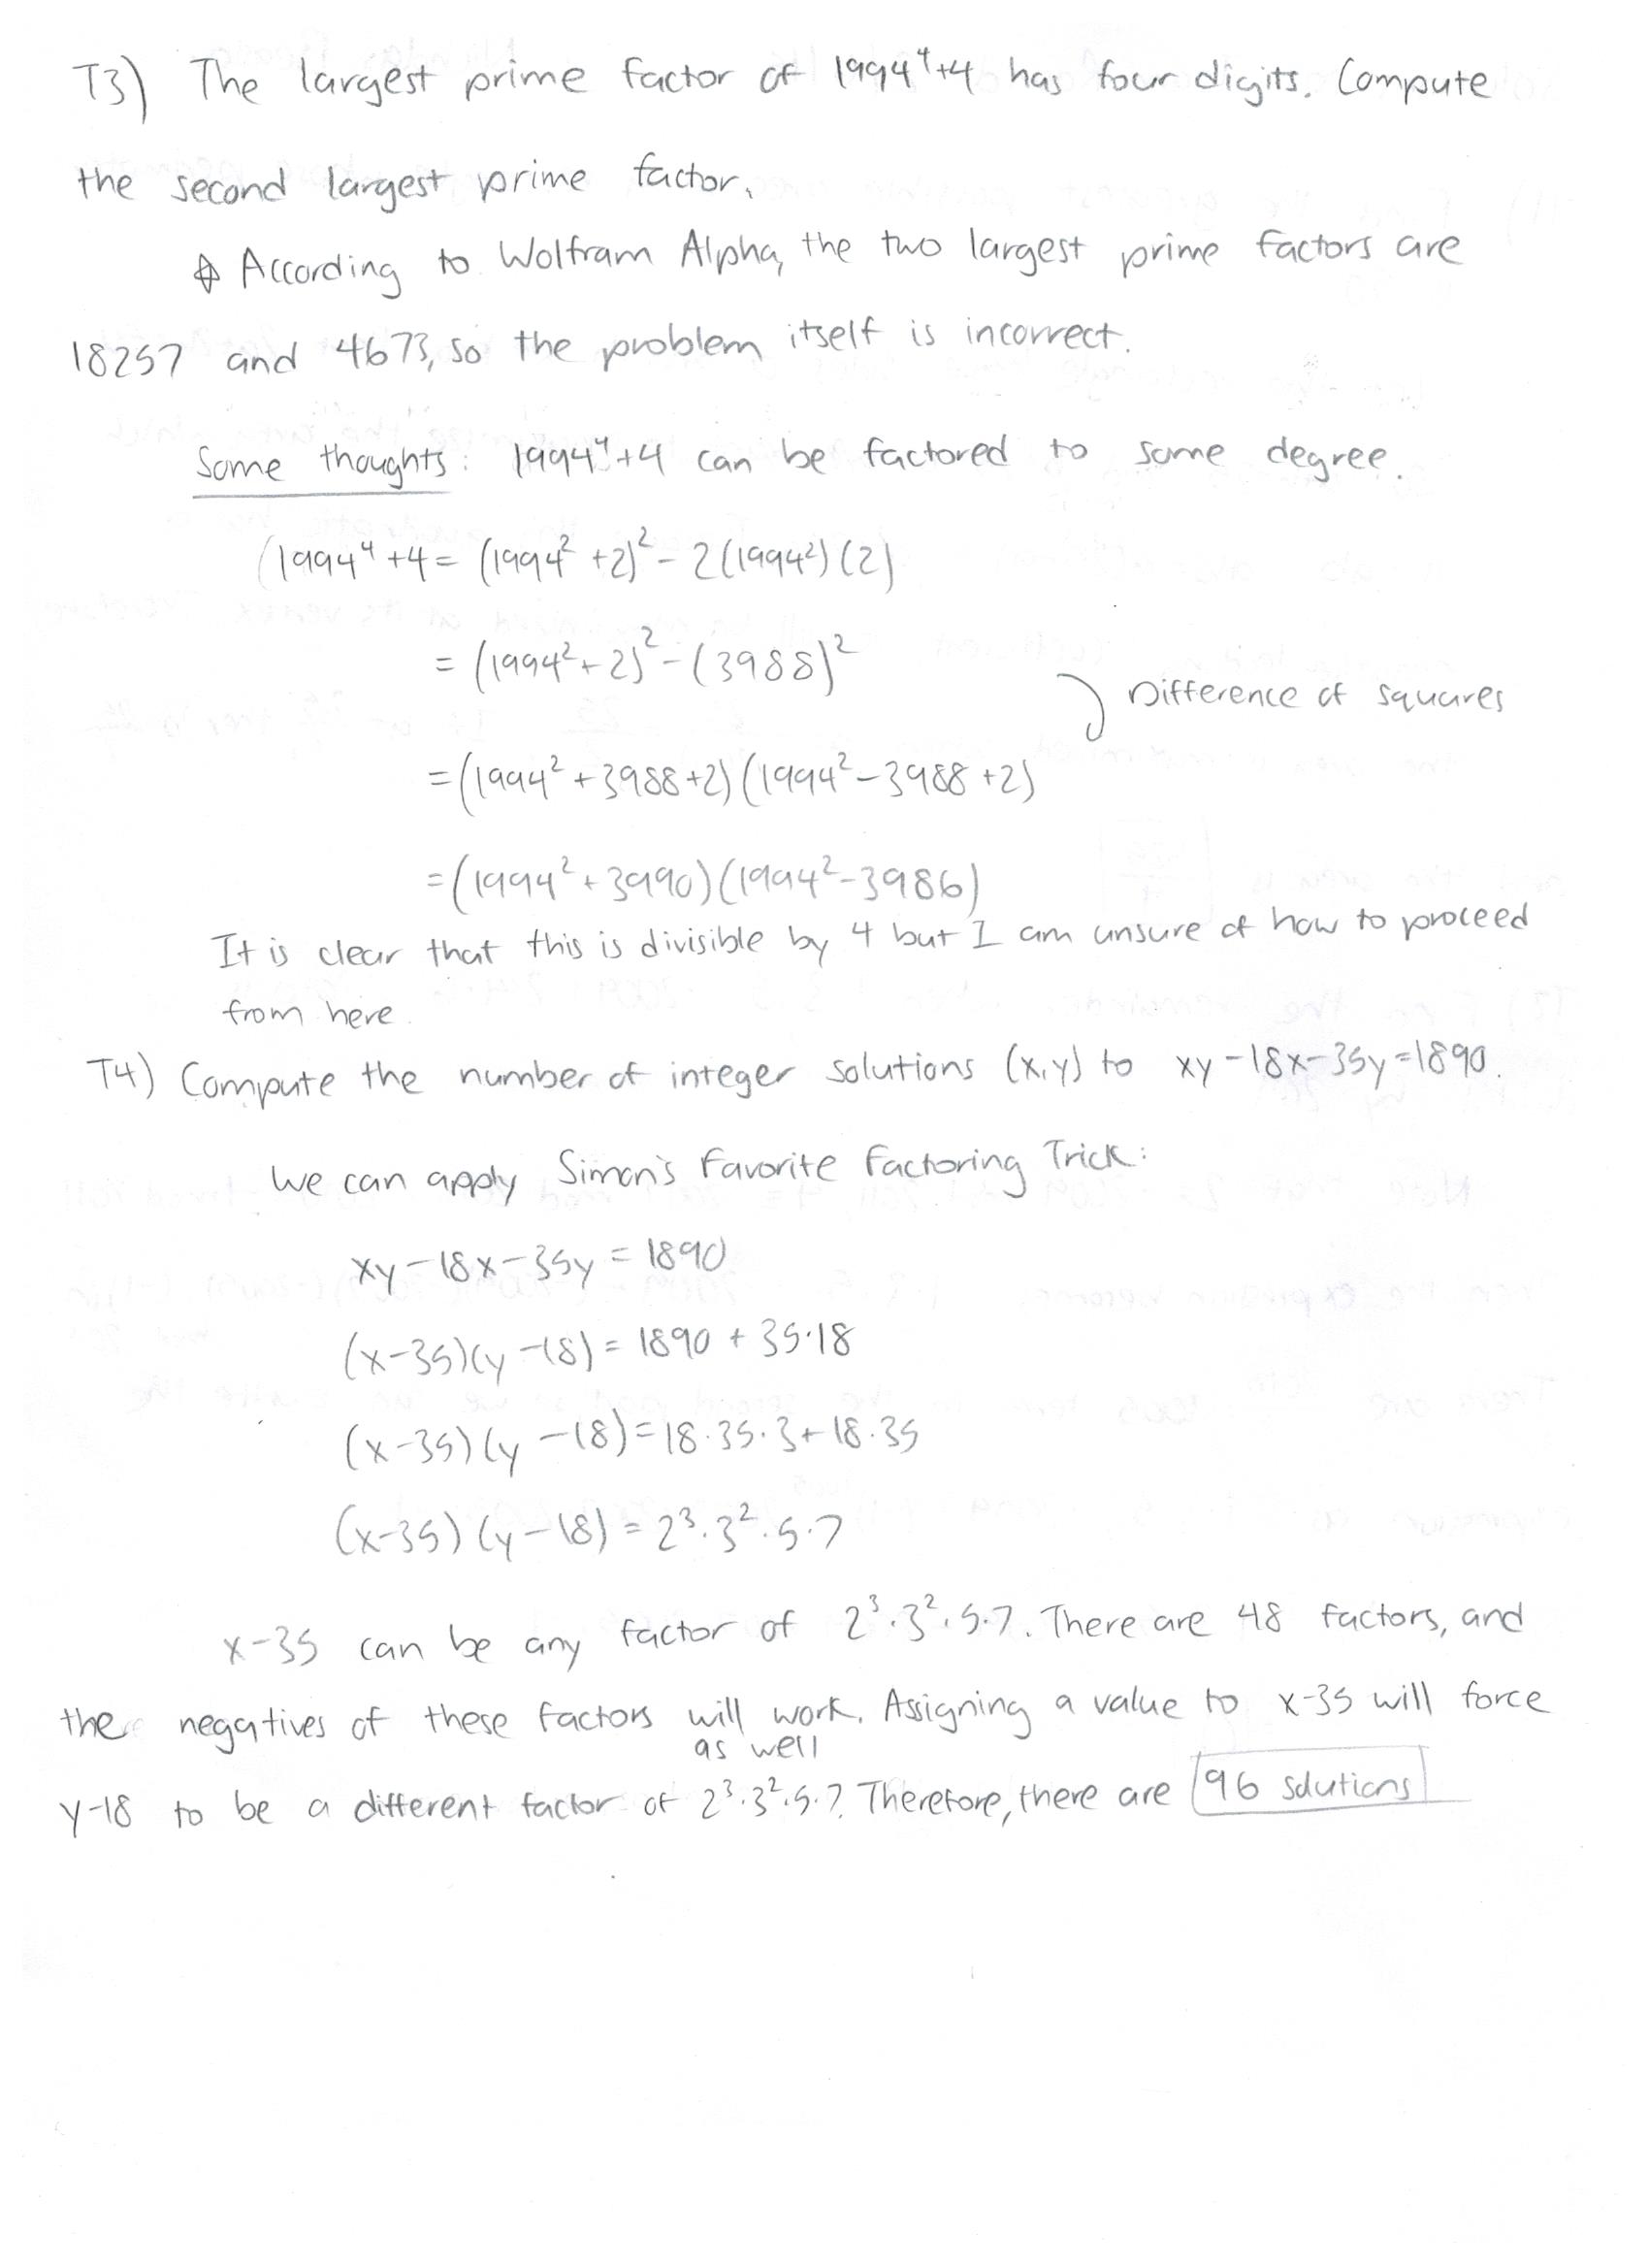 T3) The largest prime factor of 1994⁴+4 has four digits. Compute
the second largest prime factor.
According to Wolfram Alpha, the two largest prime factors are
18257 and 4673, so the problem itself is incorrect.
Some thoughts: 1994⁴+4 can be factored to some degree.
1994⁴+4 = (1994²+2)² - 2(1994²)(2)
= (1994²+2)² - (3988)²
Difference of squares
= (1994²+3988+2)(1994²-3988+2)
= (1994²+3990)(1994²-3986)
It is clear that this is divisible by 4 but I am unsure of how to proceed
from here
T4) Compute the number of integer solutions (x,y) to xy-18x-35y=1890.
We can apply Simon's Favorite Factoring Trick:
xy-18x-35y = 1890
(x-35)(y-18) = 1890 + 35·18
(x-35)(y-18) = 18·35·3 + 18·35
(x-35)(y-18) = 2³·3²·5·7
x-35 can be any factor of 2³·3²·5·7. There are 48 factors, and
the negatives of these factors will work. Assigning a value to x-35 will force
as well
y-18 to be a different factor of 2³·3²·5·7. Therefore, there are 96 solutions